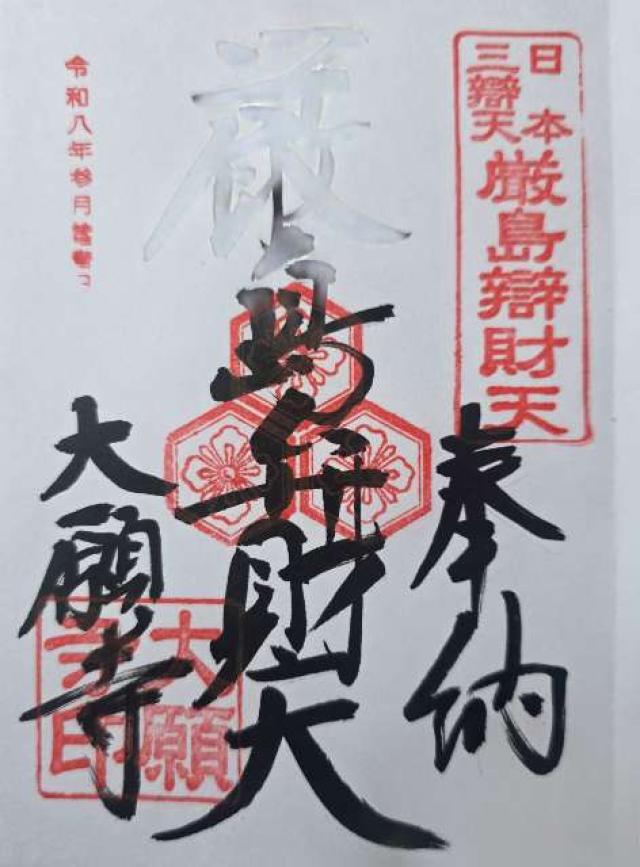 日本
三辯天
厳島辯財天
奉納
厳島弁財天
大願寺
大願
寺印
令和八年参月